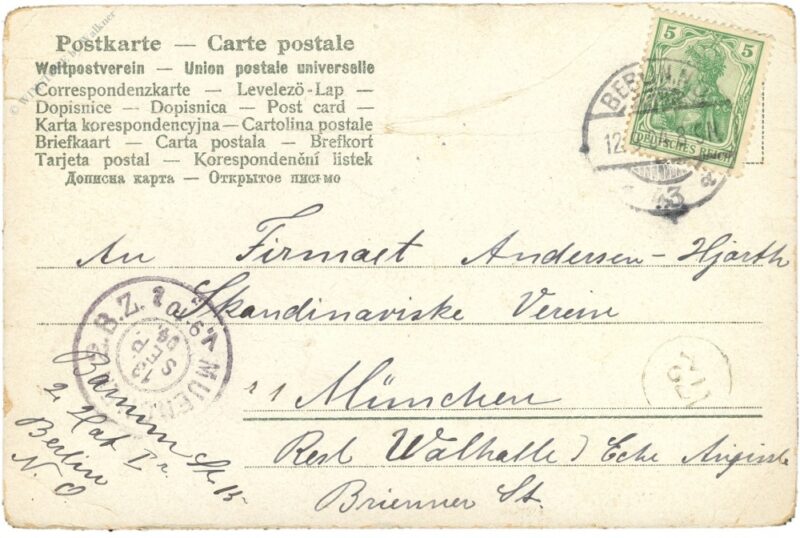 Postkarte — Carte postale
Weltpostverein — Union postale universelle
Correspondenzkarte — Levelezö-Lap —
Dopisnice — Dopisnica — Post card —
Karta korespondencyjna — Cartolina postale
Briefkaart — Carta postala — Brefkort
Tarjeta postal — Korespondenční listek
Дописна карта — Открытое письмо
© by Walkner
5 5
DEUTSCHES REICH
BERLIN N.O.
12.
43
a
An Firmaet Andersen-Hjorth
Skandinaviske Verein
München
Rest Walhalle) Ecke Auguste
Brienner St.
13
SEP.
B.Z. 2
Barnim St. 15
2 Hof I r.
Berlin
N.O.